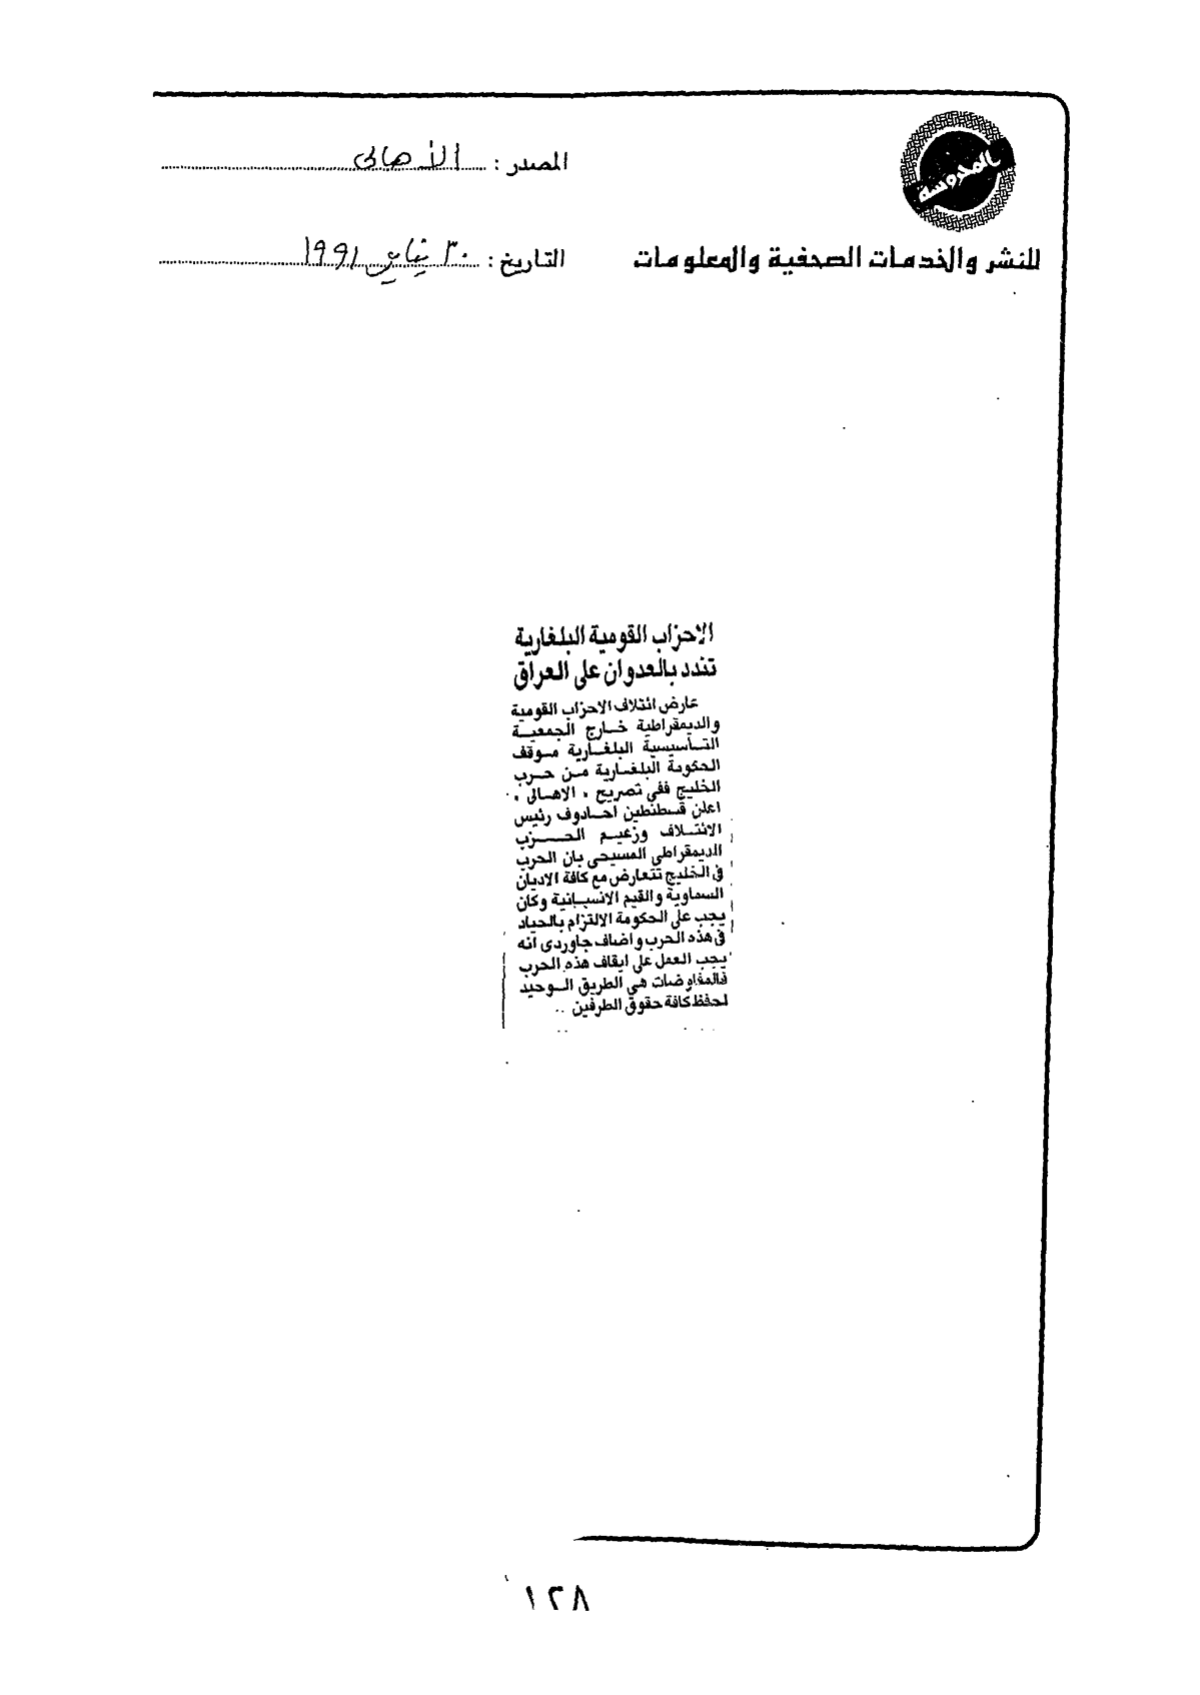 المحروسة
للنشر والخدمات الصحفية والمعلومات
المصدر : الأهالى
التاريخ : ٣٠ يناير ١٩٩١
الاحزاب القومية البلغارية
تندد بالعدوان على العراق
عارض ائتلاف الاحزاب القومية
والديمقراطية خارج الجمعية
التأسيسية البلغارية موقف
الحكومة البلغارية من حرب
الخليج ففى تصريح « الاهالى »
اعلن قسطنطين احادوف رئيس
الائتلاف وزعيم الحزب
الديمقراطى المسيحى بان الحرب
فى الخليج تتعارض مع كافة الاديان
السماوية والقيم الانسانية وكان
يجب على الحكومة الالتزام بالحياد
فى هذه الحرب واضاف جاوردى انه
يجب العمل على ايقاف هذه الحرب
فالمفاوضات هى الطريق الوحيد
لحفظ كافة حقوق الطرفين ..
١٢٨